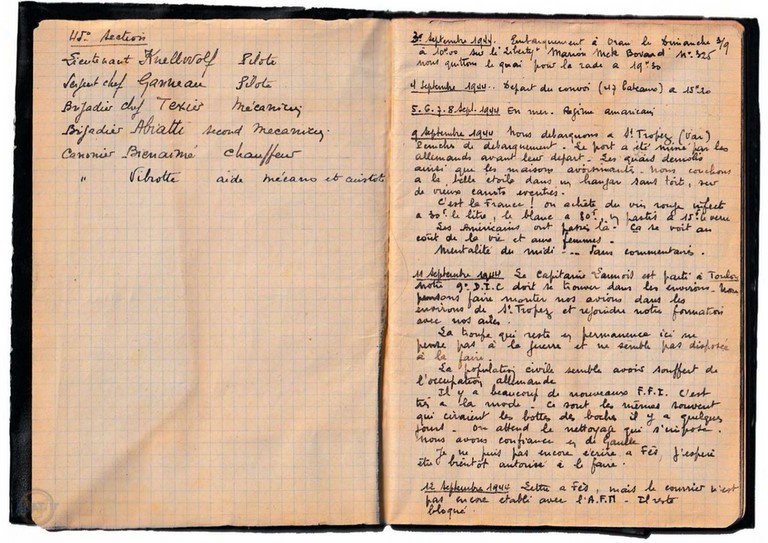 45e section
Lieutenant Knellwolf Pilote
Sergent chef Ganneau Pilote
Brigadier chef Texier Mécanicien
Brigadier Abiatti second Mecanicien
Canonier Bienaimé chauffeur
" Vibrotte aide mécano et
3 Septembre 1944. Embarquement à Oran le Dimanche 3/9
à 10h00 sur le "Liberty" Marion Mck Bovard N° 325
nous quittons le quai pour la rade a 19h30
4 Septembre 1944. Depart du convoi (47 bateaux) a 15h20
5.6.7.8 Sept. 1944 En mer. Régime americain
9 Septembre 1944 Nous debarquons a St Tropez (Var)
de debarquement. Le port a été miné par les
allemands avant leur depart. Les quais demolis
ainsi que les maisons avoisinantes. Nous couchons
à la belle etoile dans un hangar sans toit, sur
de vieux canots eventrés.
C'est la France! on achète du vin rouge infect
a 30f le litre, le blanc a 80f, le pastis a 15f le verre
Les Américains ont passé là. Ça se voit au
coût de la vie et aux femmes.
Mentalité du midi --- Sans commentaires.
11 Septembre 1944 Le Capitaine Lannois est parti à Toulon
notre 9e D.I.C doit se trouver dans les environs. Nous
pensons faire monter nos avions dans les
environs de St Tropez et rejoindre notre formation
avec nos ailes.
La troupe qui reste en permanence ici ne
pense pas à la guerre et ne semble pas disposée
à la faire.
La population civile semble avoir souffert de
l'occupation allemande
Il y a beaucoup de nouveaux F.F.I. C'est
très a la mode. Ce sont les mêmes souvent
qui ciraient les bottes des boches il y a quelques
jours. On attend le nettoyage qui s'impose.
Nous avons confiance en de Gaulle
Je ne puis pas encore écrire a Fès, j'espère
être bientôt autorisé à le faire.
12 Septembre 1944 Lettre a Fès, mais le courrier n'est
pas encore etabli avec l'A.F.N. Il reste
bloqué.